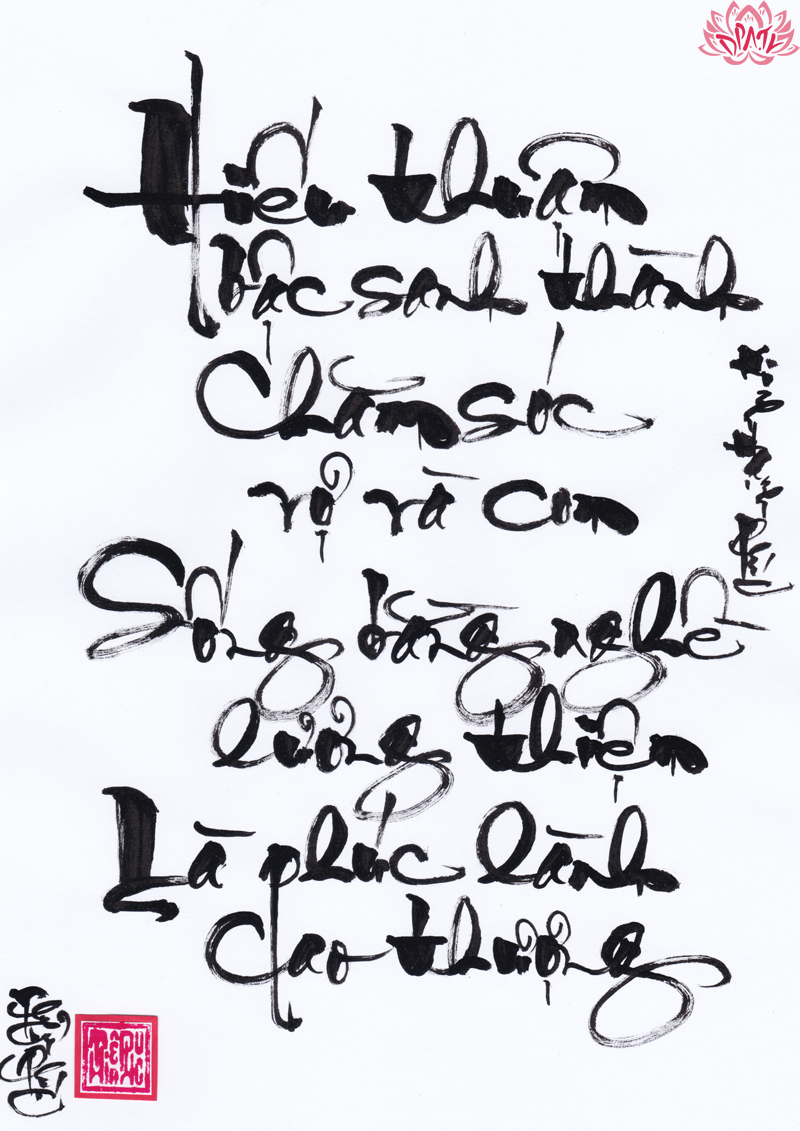 Hiếu thuận
bậc sanh thành
Chăm sóc
vợ và con
Sống bằng nghề
lương thiện
Là phúc lành
cao thượng
ĐPATK